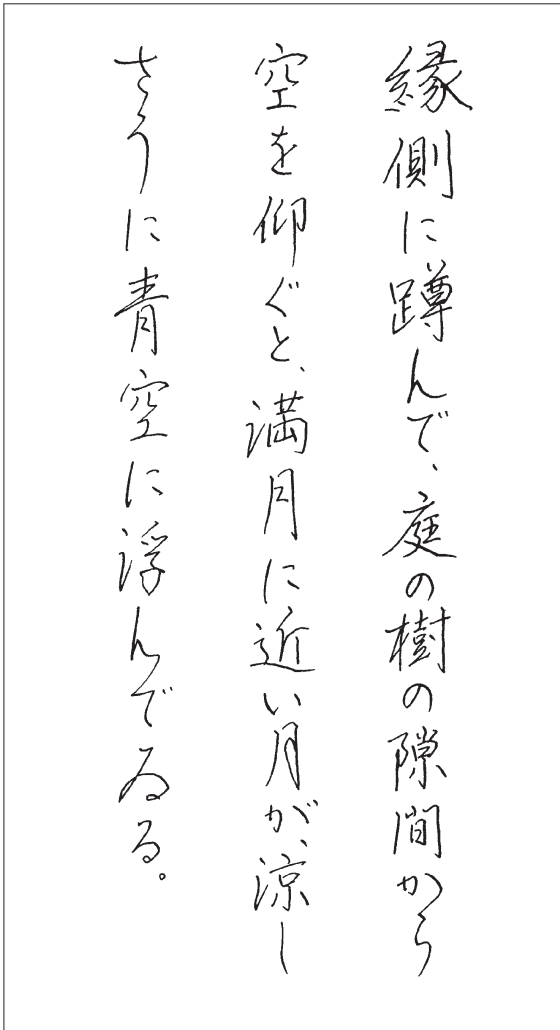 縁側に蹲んで、庭の樹の隙間から
空を仰ぐと、満月に近い月が、涼し
さうに青空に浮んでゐる。